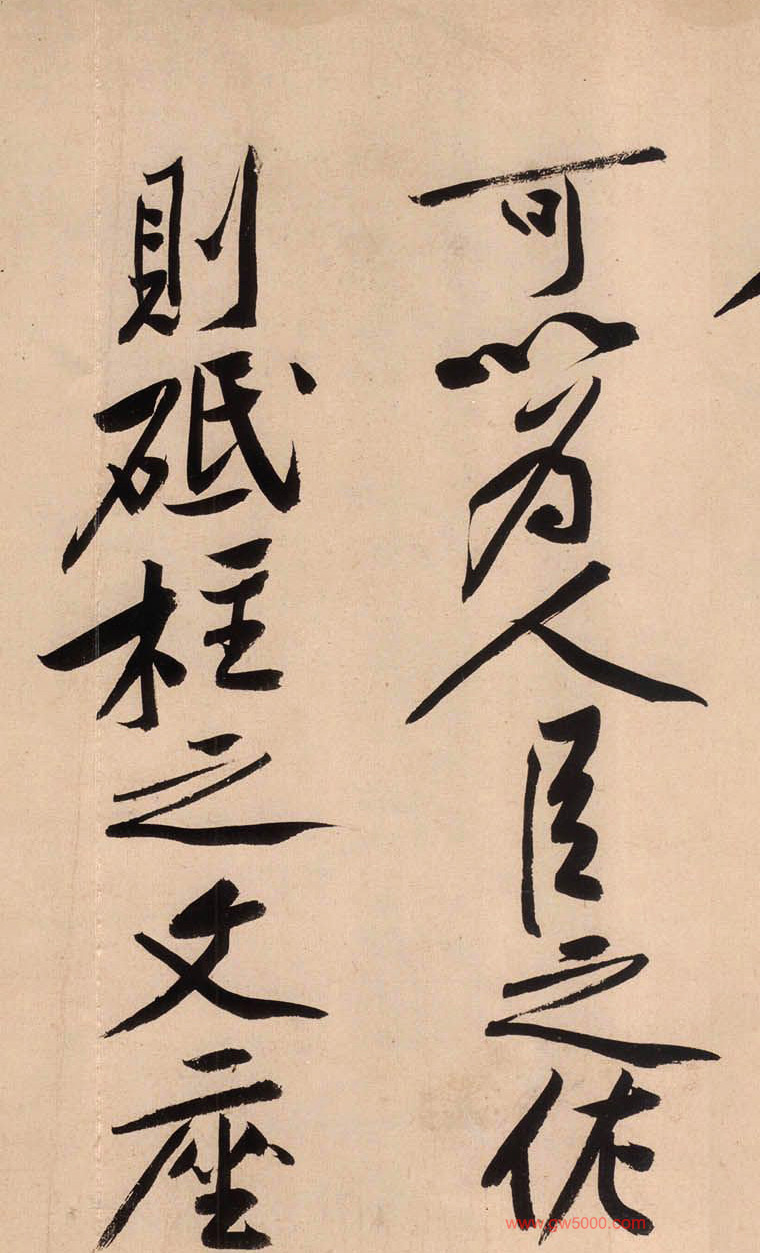 可以為人臣之佐
則砥柱之文座
www.gw5000.com